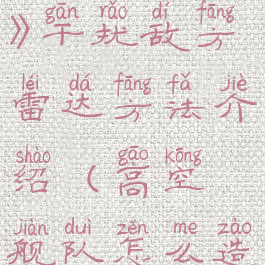 gān rǎo dí fāng
》干扰敌方
léi dá fāng fǎ jiè
雷达方法介
shào gāo kōng
绍（高空
jiàn duì zěn me zào
舰队怎么造